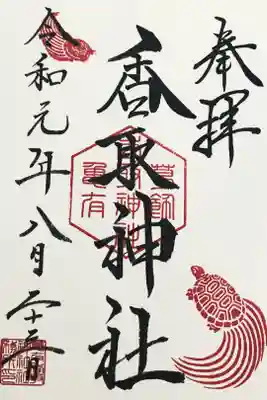 奉拝
香取神社
葛飾
亀有
令和元年八月二十三日